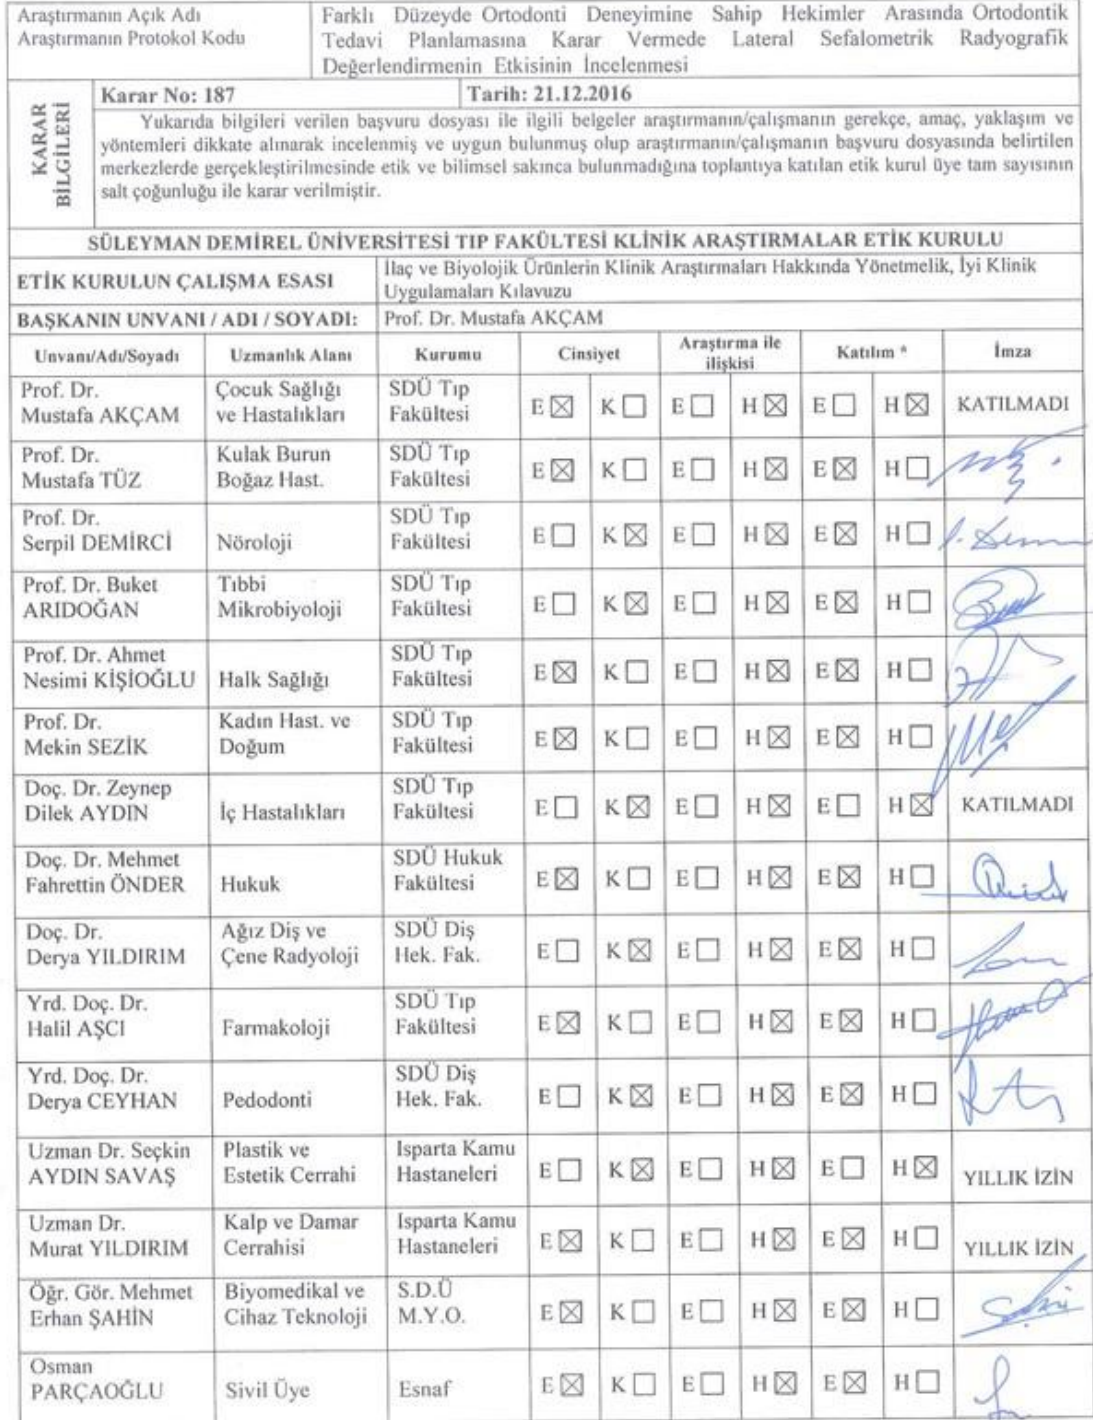 Araştırmanın Açık Adı
Araştırmanın Protokol Kodu
Farklı Düzeyde Ortodonti Deneyimine Sahip Hekimler Arasında Ortodontik
Tedavi Planlamasına Karar Vermede Lateral Sefalometrik Radyografik
Değerlendirmenin Etkisinin İncelenmesi
KARAR
BİLGİLERİ
Karar No: 187 Tarih: 21.12.2016
Yukarıda bilgileri verilen başvuru dosyası ile ilgili belgeler araştırmanın/çalışmanın gerekçe, amaç, yaklaşım ve
yöntemleri dikkate alınarak incelenmiş ve uygun bulunmuş olup araştırmanın/çalışmanın başvuru dosyasında belirtilen
merkezlerde gerçekleştirilmesinde etik ve bilimsel sakınca bulunmadığına toplantıya katılan etik kurul üye tam sayısının
salt çoğunluğu ile karar verilmiştir.
SÜLEYMAN DEMİREL ÜNİVERSİTESİ TIP FAKÜLTESİ KLİNİK ARAŞTIRMALAR ETİK KURULU
ETİK KURULUN ÇALIŞMA ESASI
İlaç ve Biyolojik Ürünlerin Klinik Araştırmaları Hakkında Yönetmelik, İyi Klinik
Uygulamaları Kılavuzu
BAŞKANIN UNVANI / ADI / SOYADI: Prof. Dr. Mustafa AKÇAM
Unvanı/Adı/Soyadı Uzmanlık Alanı Kurumu Cinsiyet Araştırma ile Katılım * İmza
ilişkisi
Prof. Dr. Çocuk Sağlığı SDÜ Tıp
Mustafa AKÇAM ve Hastalıkları Fakültesi E ☒ K ☐ E ☐ H ☒ E ☐ H ☒ KATILMADI
Prof. Dr. Kulak Burun SDÜ Tıp
Mustafa TÜZ Boğaz Hast. Fakültesi E ☒ K ☐ E ☐ H ☒ E ☒ H ☐
Prof. Dr. SDÜ Tıp
Serpil DEMİRCİ Nöroloji Fakültesi E ☐ K ☒ E ☐ H ☒ E ☒ H ☐
Prof. Dr. Buket Tıbbi SDÜ Tıp
ARIDOĞAN Mikrobiyoloji Fakültesi E ☐ K ☒ E ☐ H ☒ E ☒ H ☐
Prof. Dr. Ahmet SDÜ Tıp
Nesimi KİŞİOĞLU Halk Sağlığı Fakültesi E ☒ K ☐ E ☐ H ☒ E ☒ H ☐
Prof. Dr. Kadın Hast. ve SDÜ Tıp
Mekin SEZİK Doğum Fakültesi E ☒ K ☐ E ☐ H ☒ E ☒ H ☐
Doç. Dr. Zeynep SDÜ Tıp
Dilek AYDIN İç Hastalıkları Fakültesi E ☐ K ☒ E ☐ H ☒ E ☐ H ☒ KATILMADI
Doç. Dr. Mehmet SDÜ Hukuk
Fahrettin ÖNDER Hukuk Fakültesi E ☒ K ☐ E ☐ H ☒ E ☒ H ☐
Doç. Dr. Ağız Diş ve SDÜ Diş
Derya YILDIRIM Çene Radyoloji Hek. Fak. E ☐ K ☒ E ☐ H ☒ E ☒ H ☐
Yrd. Doç. Dr. SDÜ Tıp
Halil AŞCI Farmakoloji Fakültesi E ☒ K ☐ E ☐ H ☒ E ☒ H ☐
Yrd. Doç. Dr. SDÜ Diş
Derya CEYHAN Pedodonti Hek. Fak. E ☐ K ☒ E ☐ H ☒ E ☒ H ☐
Uzman Dr. Seçkin Plastik ve Isparta Kamu
AYDIN SAVAŞ Estetik Cerrahi Hastaneleri E ☐ K ☒ E ☐ H ☒ E ☐ H ☒ YILLIK İZİN
Uzman Dr. Kalp ve Damar Isparta Kamu
Murat YILDIRIM Cerrahisi Hastaneleri E ☒ K ☐ E ☐ H ☒ E ☒ H ☐ YILLIK İZİN
Öğr. Gör. Mehmet Biyomedikal ve S.D.Ü
Erhan ŞAHİN Cihaz Teknoloji M.Y.O. E ☒ K ☐ E ☐ H ☒ E ☒ H ☐
Osman
PARÇAOĞLU Sivil Üye Esnaf E ☒ K ☐ E ☐ H ☒ E ☒ H ☐